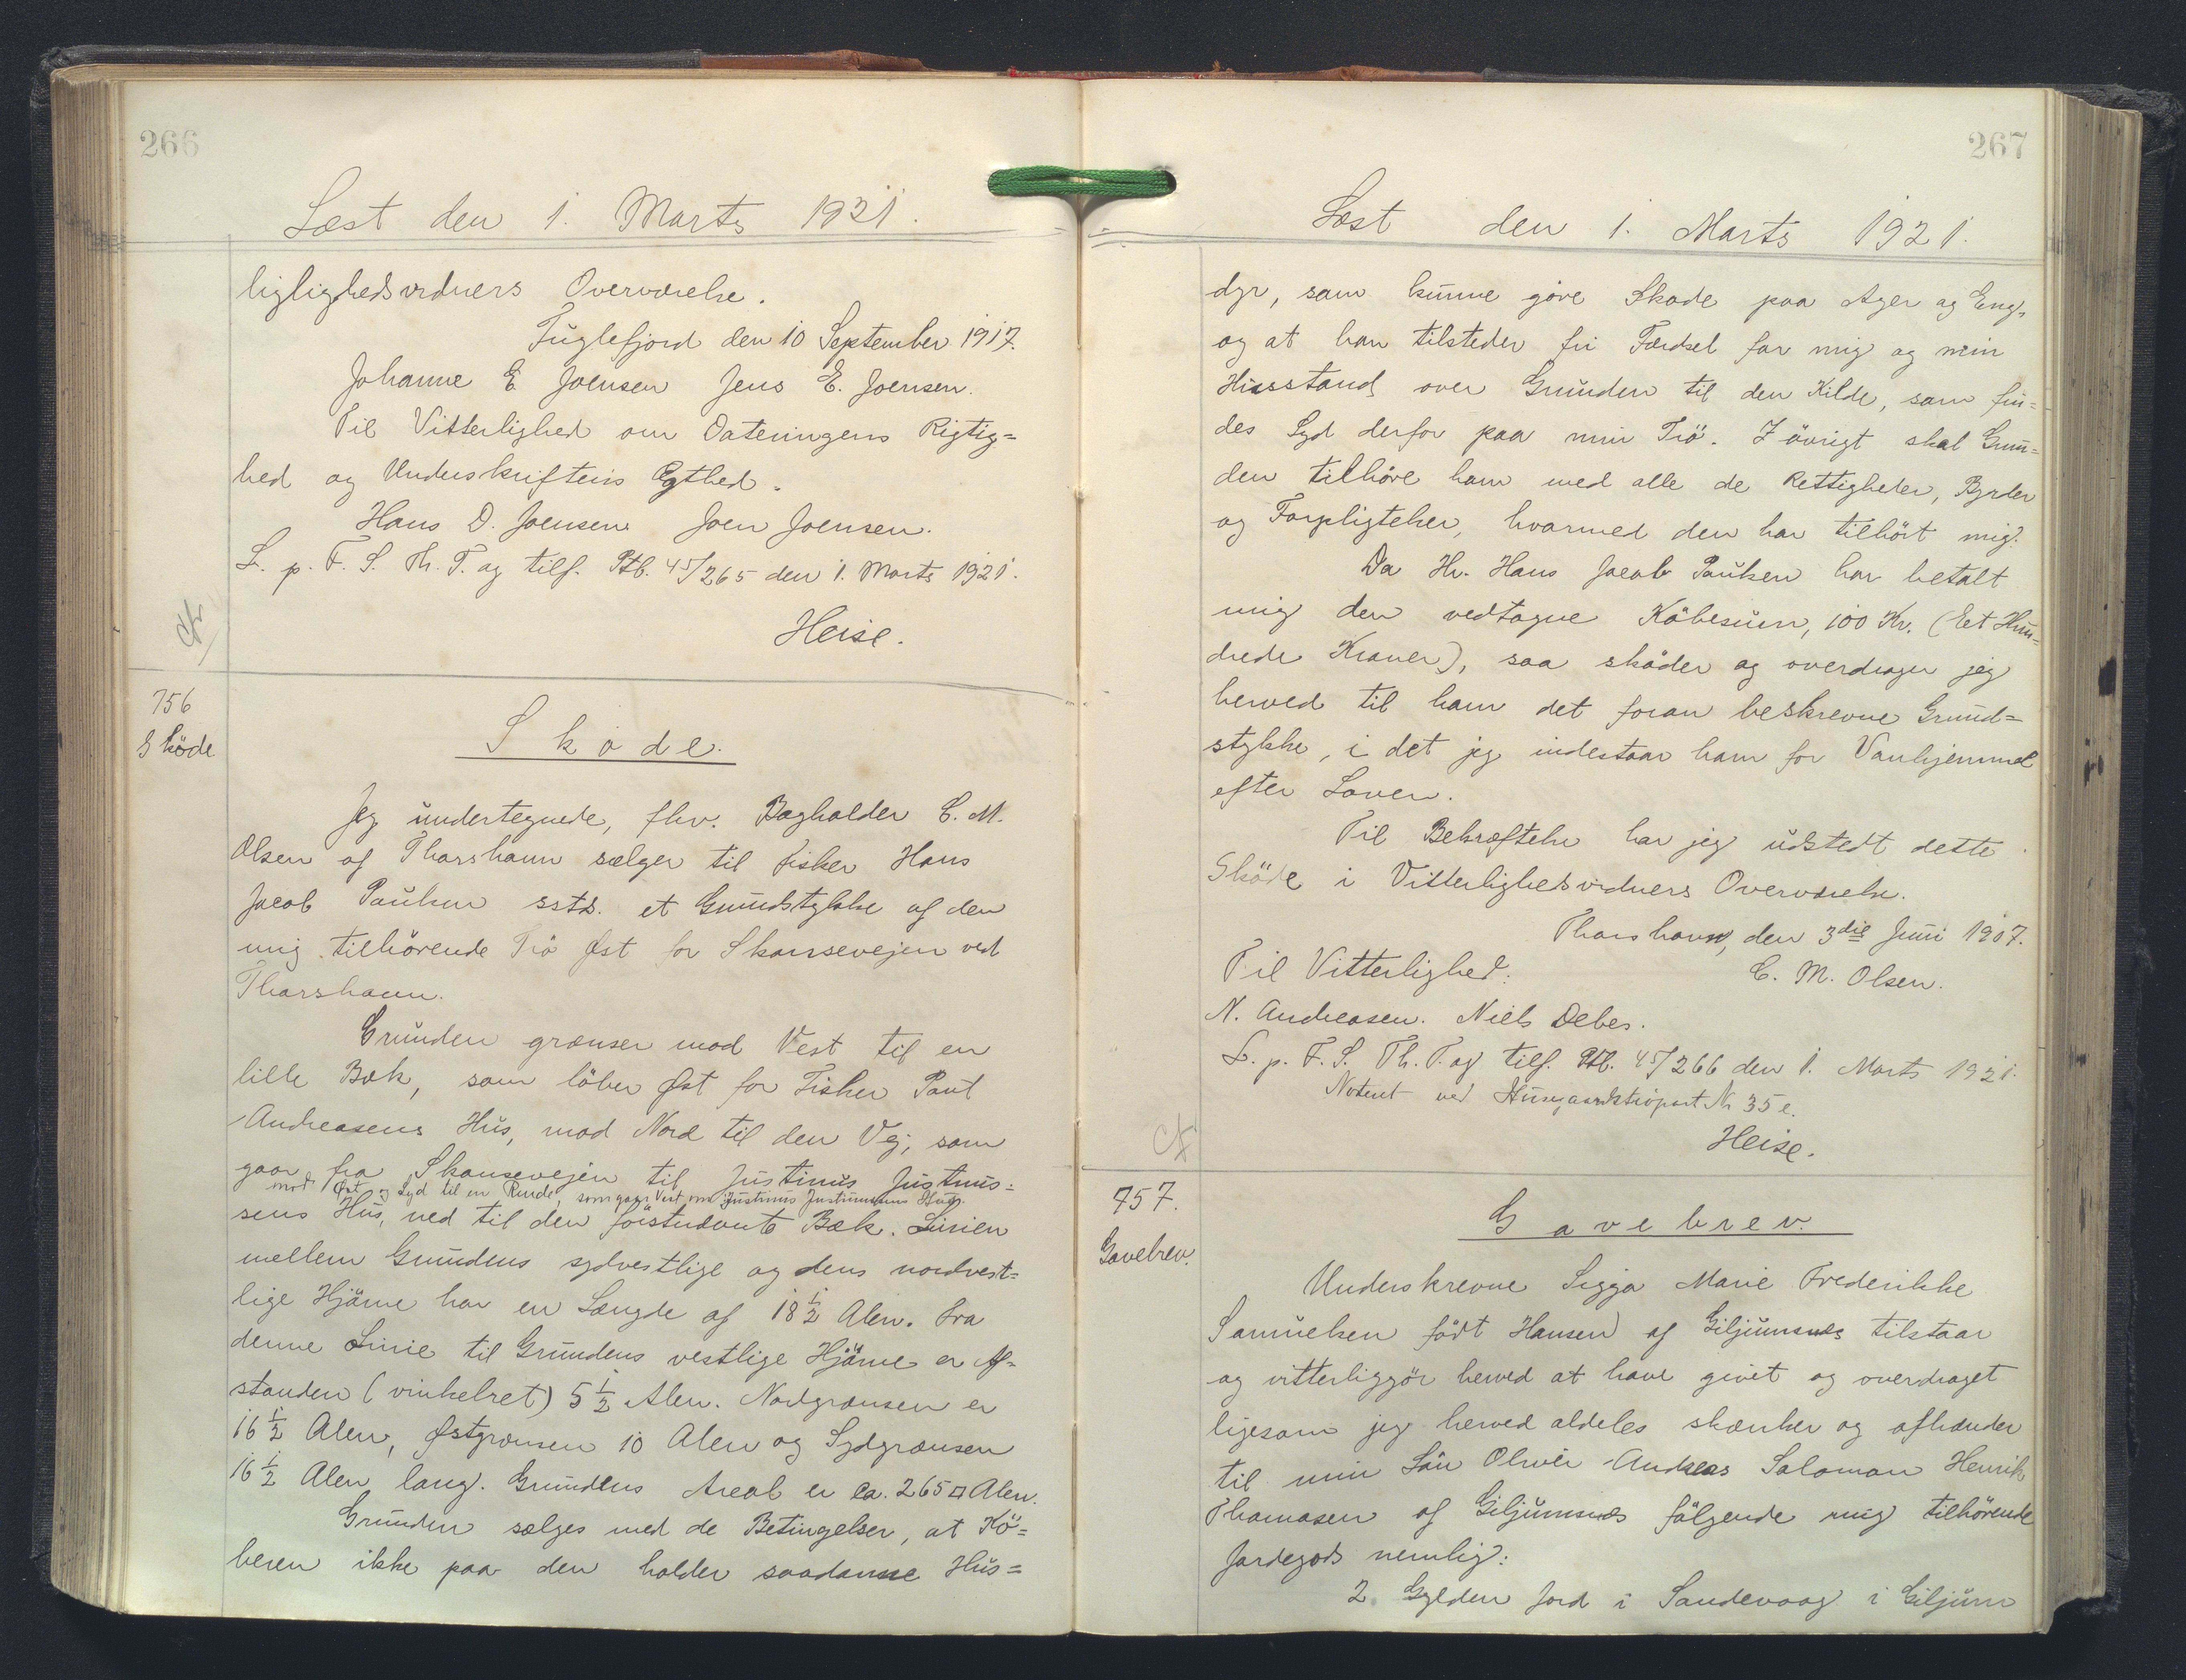 266
Læst den 1. Marts 1921.
liglighedsvidners Overværelse.
Fuglefjord den 10 September 1917.
Johanne E Joensen Jens E. Joensen.
Til Vitterlighed om Dateringens Rigtig=
hed og Underskriftens Ægthed.
Hans D. Joensen Joen Joensen.
L. p. F. S. Th. T. og tilf. Ptb. 45/265 den 1. Marts 1921.
Heise.
756
Sköde
Sköde.
Jeg undertegnede, fhv. Bogholder C. M.
Olsen af Thorshavn sælger til Fisker Hans
Jacob Paulsen sstds. et Grundstykke af den
mig tilhörende Trö Øst for Skansevejen ved
Thorshavn.
Grunden grænser mod Vest til en
lille Bæk, som löber Øst for Fisker Poul
Andreasens Hus, mod Nord til den Vej, som
gaar fra Skansevejen til Justinus Justinus=
mod Øst og Syd til en Rende, som gaar Vest om Justinus Justinussens Hus
sens Hus, ned til den förstnævnte Bæk. Linien
mellem Grundens sydvestlige og dens nordvest=
lige Hjörne har en Længde af 18 1/2 Alen. Fra
denne Linie til Grundens vestlige Hjörne er Af=
standen (vinkelret) 5 1/2 Alen. Nordgrænsen er
16 1/2 Alen, Østgrænsen 10 Alen og Sydgrænsen
16 1/2 Alen lang. Grundens Areal er ca. 265 □ Alen.
Grunden sælges med de Betingelser, at Kö=
beren ikke paa den holder saadanne Hus=
267
Læst den 1. Marts 1921.
dyr, som kunne göre Skade paa Ager og Eng,
og at han tilsteder fri Færdsel for mig og min
Husstand over Grunden til den Kilde, som fin=
des Syd derfor paa min Trö. I övrigt skal Grun=
den tilhöre ham med alle de Rettigheder, Byrder
og Forpligtelser, hvormed den har tilhört mig.
Da Hr. Hans Jacob Paulsen har betalt
mig den vedtagne Köbesum, 100 Kr. (Et Hun=
drede Kroner), saa sköder og overdrager jeg
herved til ham det foran beskrevne Grund=
stykke, i det jeg indestaar ham for Vanhjemmel
efter Loven.
Til Bekræftelse har jeg udstedt dette
Sköde i Vitterlighedsvidners Overværelse.
Thorshavn, den 3die Juni 1907.
Til Vitterlighed: C. M. Olsen.
N. Andreasen. Niels Debes.
L. p. F. S. Th. T. og tilf. Ptb. 45/266 den 1. Marts 1921.
Noteret ved Husassistraport Nr 35 e.
Heise.
757.
Gavebrev.
Gavebrev.
Underskrevne Sigga Marie Frederikke
Samuelsen födt Hansen af Giljumnæs tilstaar
og vitterliggör herved at have givet og overdraget
ligesom jeg herved aldeles skænker og afhænder
til min Sön Oliver Andreas Salomon Henrik
Thomasen af Giljumnæs fölgende mig tilhörende
Jordegods nemlig:
2 Gylden Jord i Sandevaag i Giljum